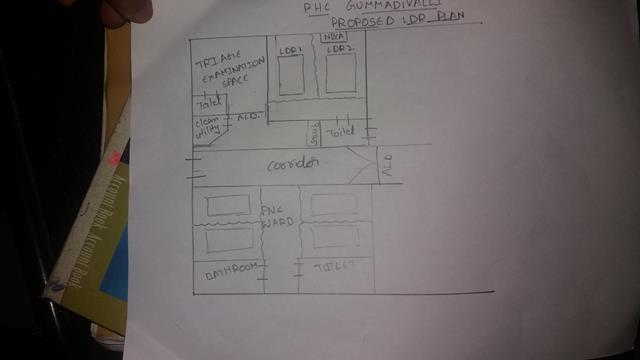 PHC GUMMADIVALLI
PROPOSED LDR PLAN
TRIAGE
EXAMINATION
SPACE
LDR1
NBCA
LDR2
Toilet
clean
utility
ALD.
Scrub
Toilet
Corridor
ALD
PNC
WARD
BATHROOM
TOILET
Account Book
Account Book